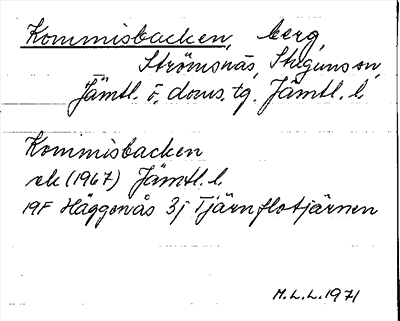 Kommisbacken, berg,
Strömsnäs, Stuguns sn,
Jämtl. ö. doms. tg. Jämtl. l.
Kommisbacken
ek (1967) Jämtl. l.
19F Häggenås 3j Tjärnflotjärnen
M.L.L. 1971